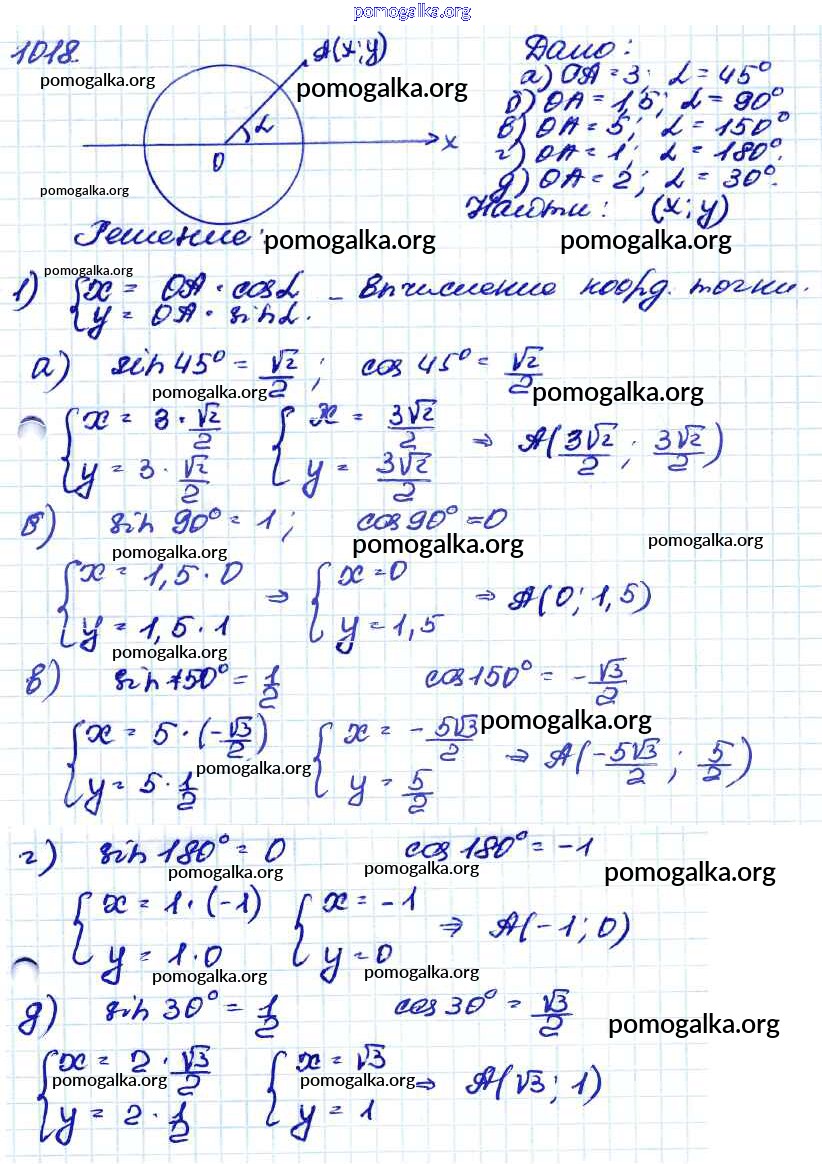 pomogalka.org
1018.
A(x;y)
Дано:
pomogalka.org
pomogalka.org
а) OA = 3; α = 45°
б) OA = 1,5; α = 90°
в) OA = 5; α = 150°
г) OA = 1; α = 180°.
д) OA = 2; α = 30°.
α
O
x
pomogalka.org
Найти: (x; y)
Решение:
pomogalka.org
pomogalka.org
pomogalka.org
1) { x = OA · cos α
y = OA · sin α. – Вычисление коорд. точки.
а) sin 45° = √2/2; cos 45° = √2/2
pomogalka.org
pomogalka.org
{ x = 3 · √2/2 { x = 3√2/2
y = 3 · √2/2 y = 3√2/2 ⇒ A(3√2/2; 3√2/2)
б) sin 90° = 1; cos 90° = 0
pomogalka.org
pomogalka.org
pomogalka.org
{ x = 1,5 · 0 ⇒ { x = 0
y = 1,5 · 1 y = 1,5 ⇒ A(0; 1,5)
pomogalka.org
в) sin 150° = 1/2 cos 150° = -√3/2
pomogalka.org
{ x = 5 · (-√3/2) { x = -5√3/2
y = 5 · 1/2 y = 5/2 ⇒ A(-5√3/2; 5/2)
pomogalka.org
г) sin 180° = 0 cos 180° = -1
pomogalka.org
pomogalka.org
pomogalka.org
{ x = 1 · (-1) { x = -1
y = 1 · 0 y = 0 ⇒ A(-1; 0)
pomogalka.org
pomogalka.org
д) sin 30° = 1/2 cos 30° = √3/2
pomogalka.org
{ x = 2 · √3/2 { x = √3
y = 2 · 1/2 y = 1 ⇒ A(√3; 1)
pomogalka.org
pomogalka.org